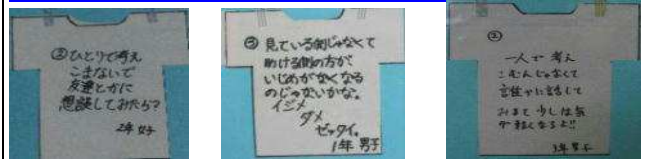 ③ひとりで考え
こまないで
友達とかに
想談してみたら?
2年 女子
⑤見ている側じゃなくて
助ける側の方が
いじめがなくなる
のじゃないかな。
イジメ
ダメ
ゼッタイ。
1年 男子
②
一人で 考え
こむんじゃなくて
誰かに話して
みると 少しは気
が軽くなるよ!!
3年 男子